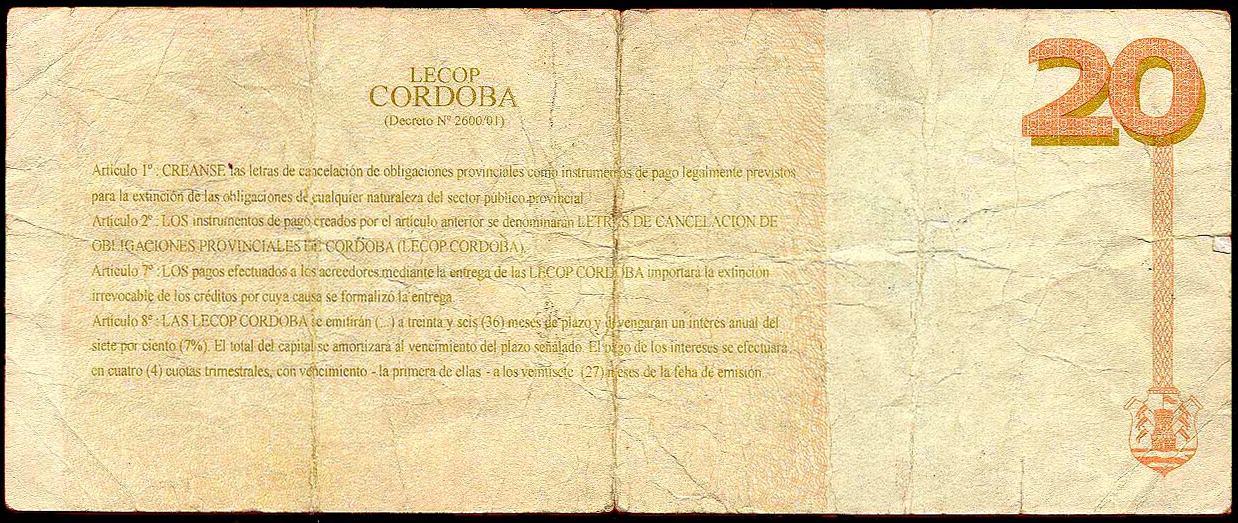 LECOP
CORDOBA
(Decreto Nº 2600/01)
20
Artículo 1º : CREANSE las letras de cancelación de obligaciones provinciales como instrumentos de pago legalmente previstos
para la extinción de las obligaciones de cualquier naturaleza del sector público provincial
Artículo 2º : LOS instrumentos de pago creados por el artículo anterior se denominarán LETRAS DE CANCELACION DE
OBLIGACIONES PROVINCIALES DE CORDOBA (LECOP CORDOBA).
Artículo 7º : LOS pagos efectuados a los acreedores mediante la entrega de las LECOP CORDOBA importará la extinción
irrevocable de los créditos por cuya causa se formalizó la entrega.
Artículo 8º : LAS LECOP CORDOBA se emitirán (...) a treinta y seis (36) meses de plazo y devengarán un interés anual del
siete por ciento (7%). El total del capital se amortizará al vencimiento del plazo señalado. El pago de los intereses se efectuará
en cuatro (4) cuotas trimestrales, con vencimiento - la primera de ellas - a los veintisete (27) meses de la feha de emisión.